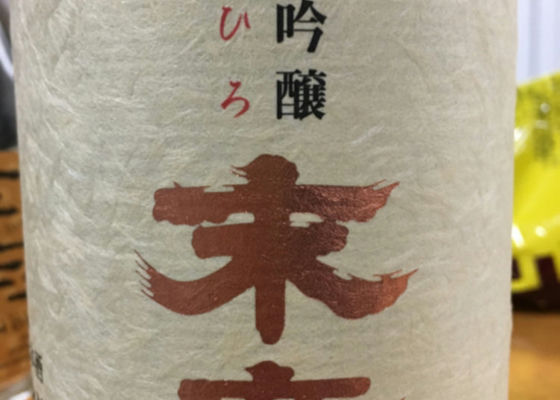 吟醸
ひろ
末